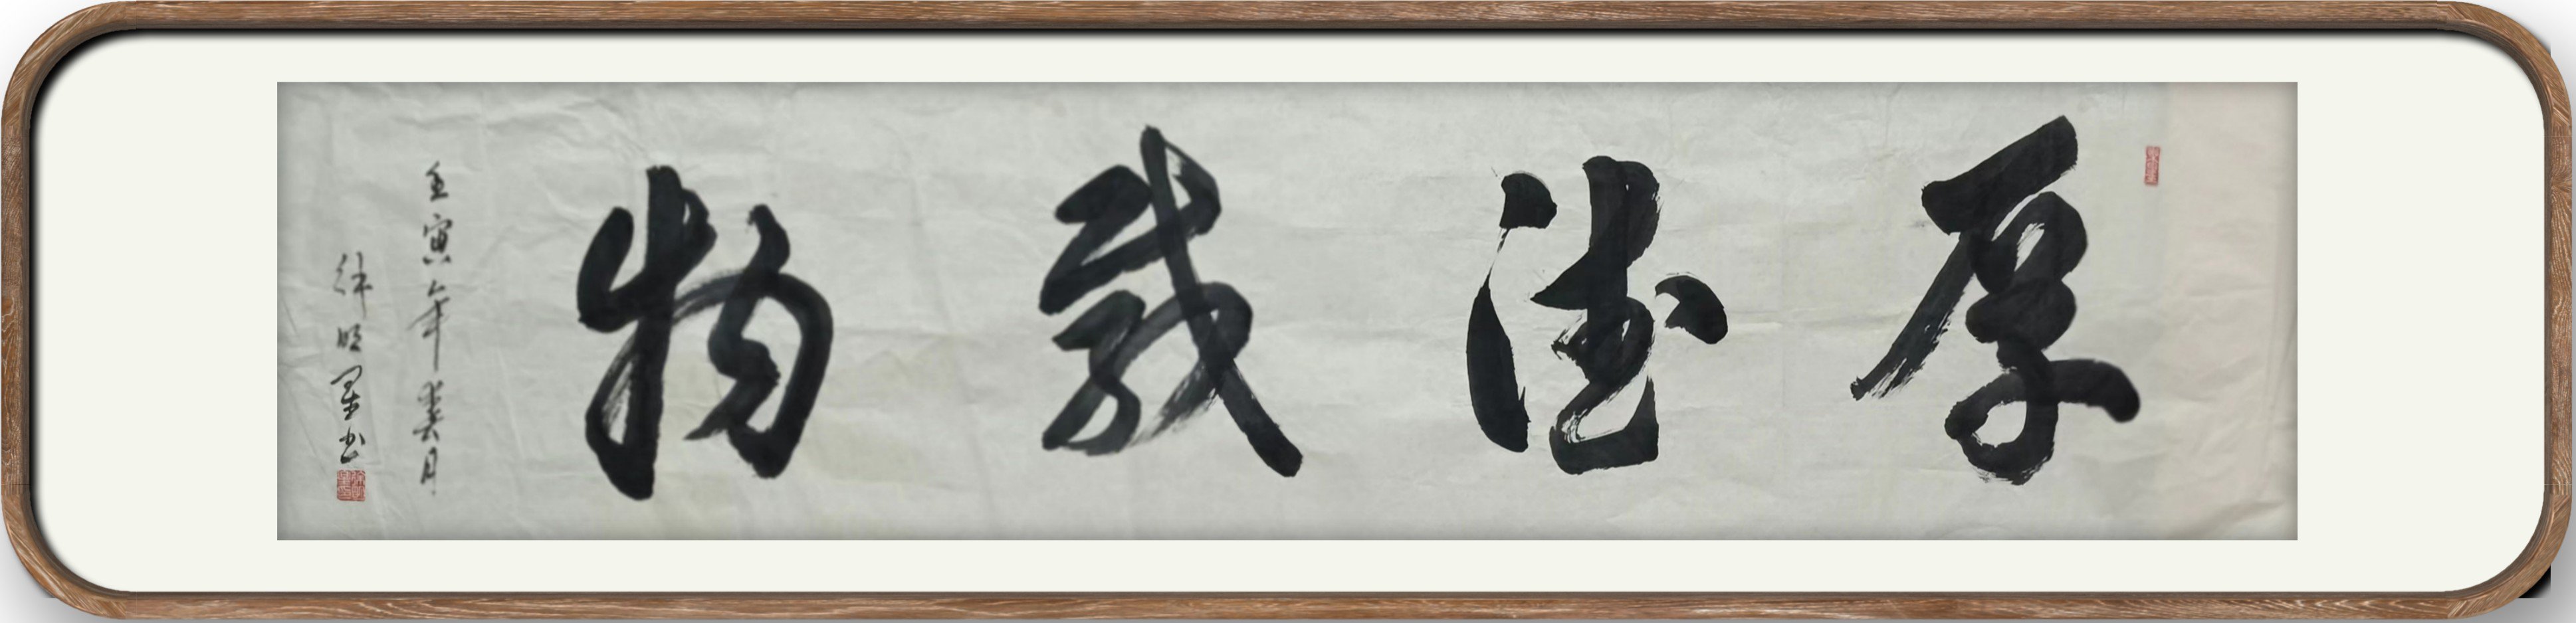 厚德载物
壬寅年癸月
明墨书